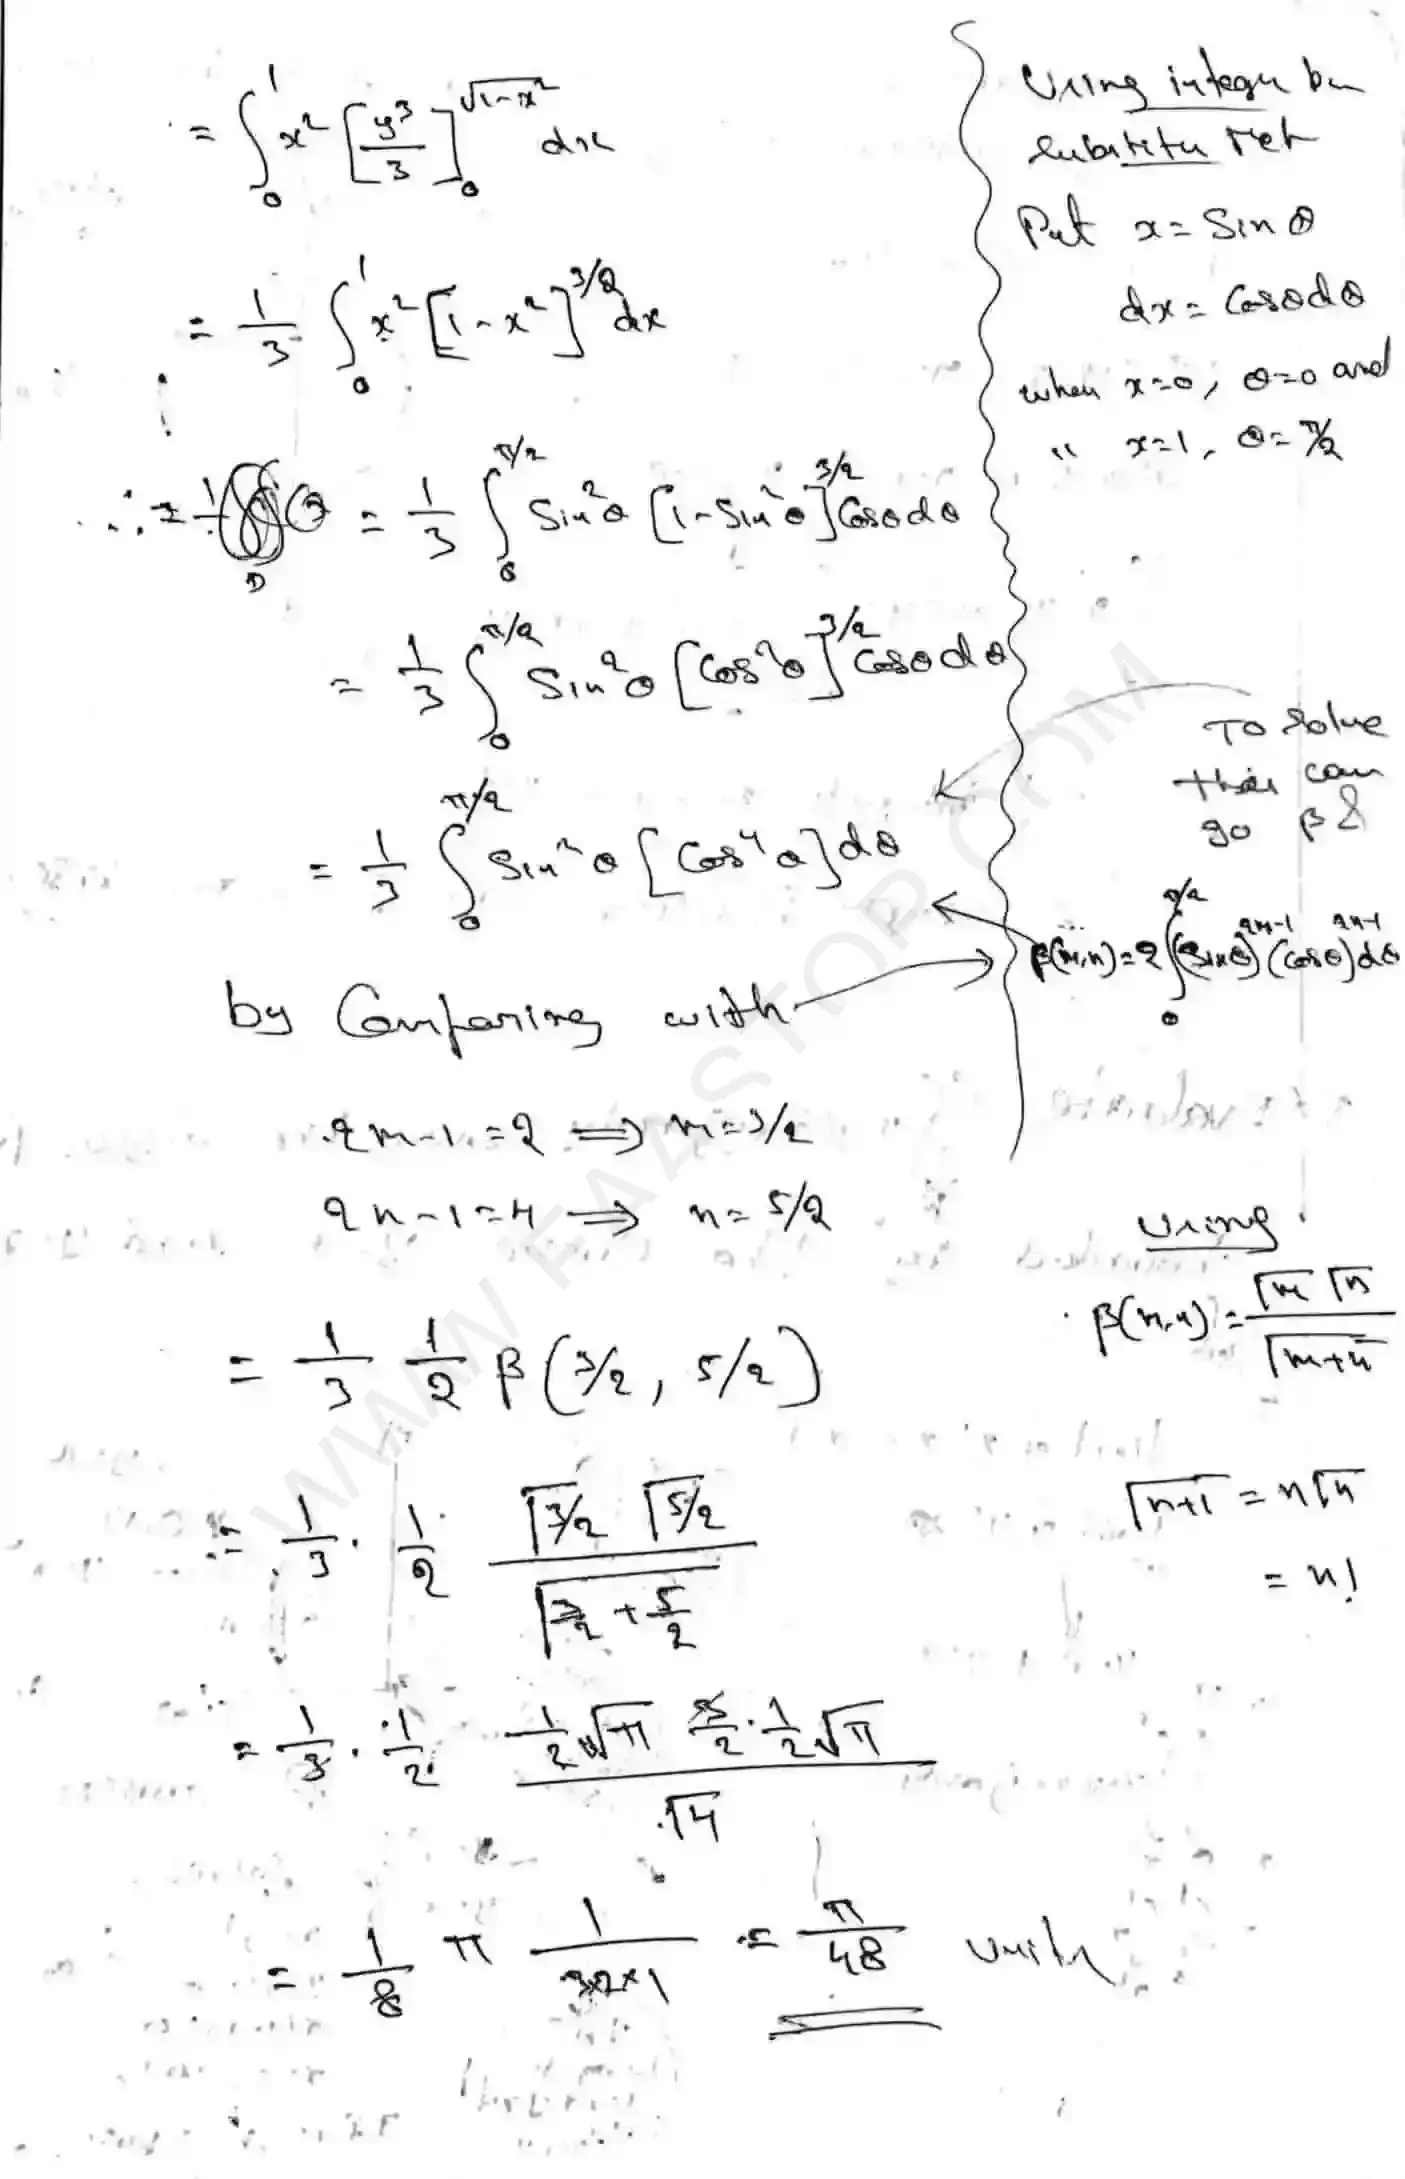 = ∫₀¹ x² [y³/3]₀^√(1-x²) dx
= 1/3 ∫₀¹ x² [1-x²]^3/2 dx
= 1/3 ∫₀^π/2 Sin²θ [1-Sin²θ]^3/2 Cosθdθ
= 1/3 ∫₀^π/2 Sin²θ [Cos²θ]^3/2 Cosθdθ
= 1/3 ∫₀^π/2 Sin²θ [Cos⁴θ]dθ
by Comparing with
2m-1=2 ⟹ m=3/2
2n-1=4 ⟹ n=5/2
= 1/3 1/2 β(3/2, 5/2)
= 1/3 · 1/2 Γ3/2 Γ5/2 / Γ(3/2 + 5/2)
= 1/3 · 1/2 (1/2 √π 3/2 · 1/2 √π) / Γ4
= 1/8 π 1/(3×2×1) = π/48 units
Using
Put x = Sin θ
dx = Cosθdθ
when x=0, θ=0 and
" x=1, θ=π/2
To solve
this can
go β &
β(m,n) = 2 ∫₀^π/2 (Sinθ)^2m-1 (Cosθ)^2n-1 dθ
Using
β(m,n) = Γm Γn / Γm+n
Γn+1 = nΓn
= n!
WWW.FAASTOP.COM